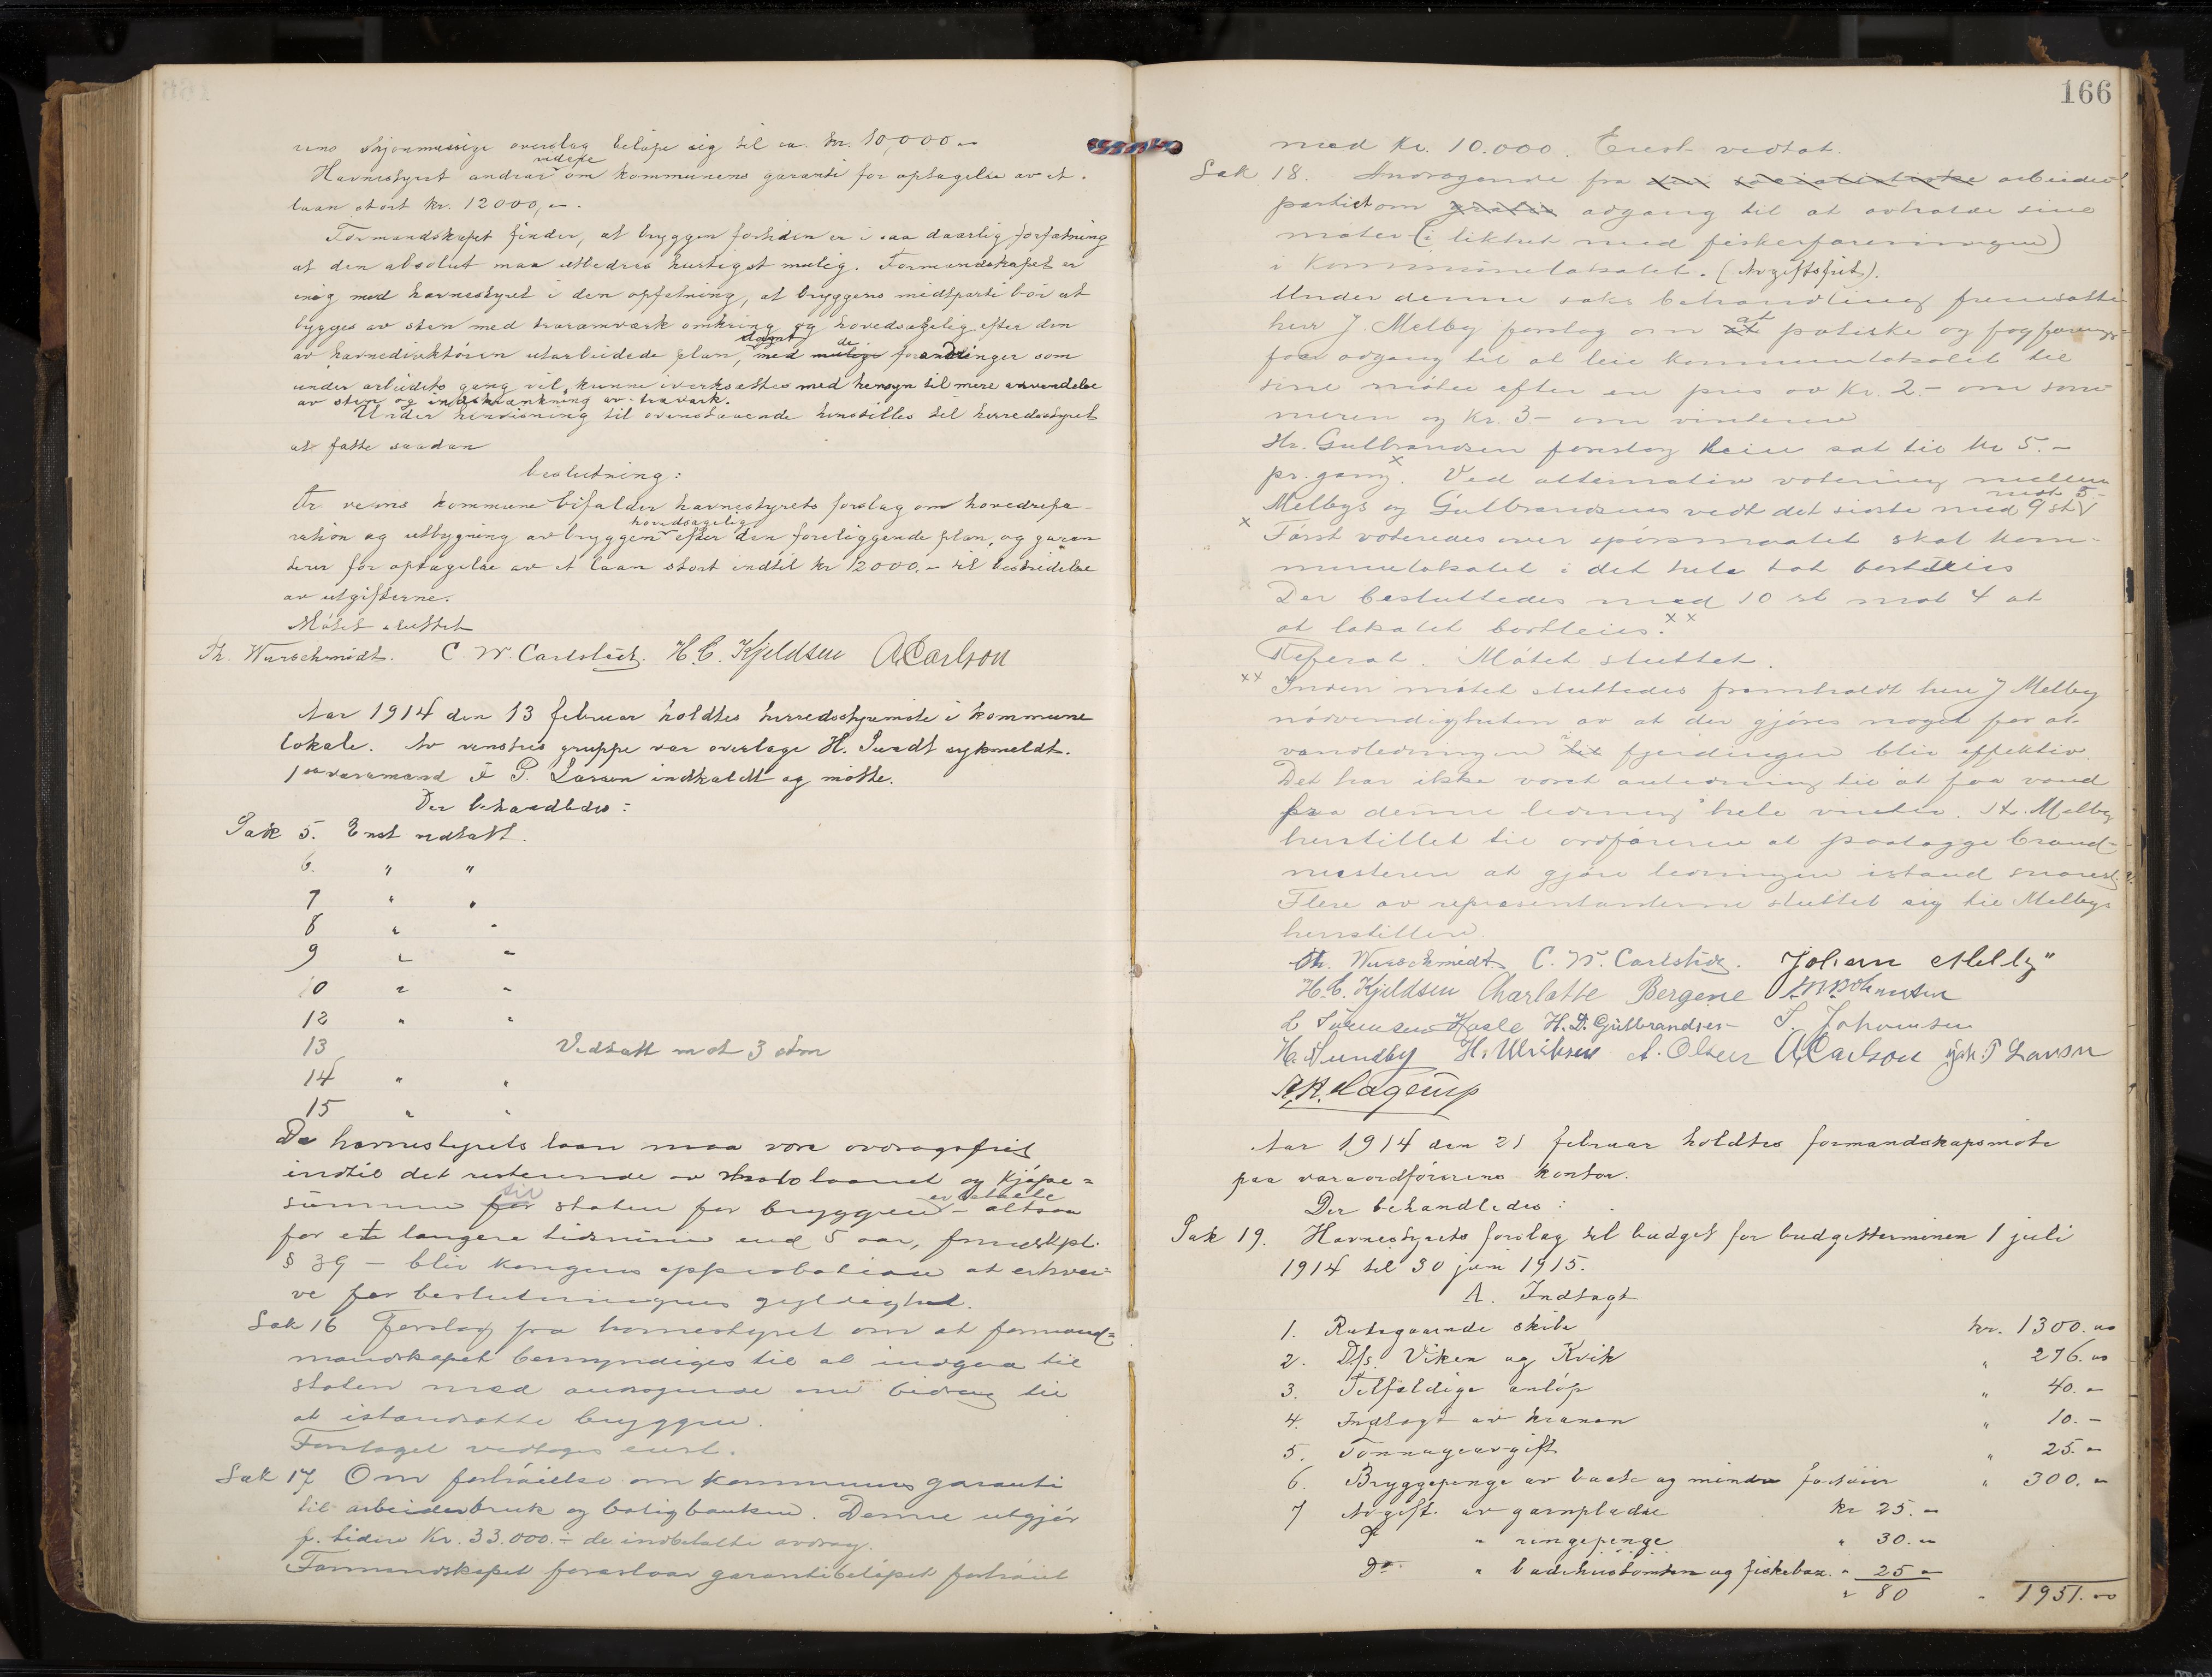 rens skjønmessige overslag beløpe sig til ca. kr. 10,000.-
Havnestyret andrar vedøre om kommunens garanti for optagelse av et
laan stort kr. 12000,-.
Formandskapet finder, at bryggen fortiden er i saa daarlig forfatning
at den absolut maa utbedres hurtigst mulig. Formandskapet er
enig med havnestyret i den opfatning, at bryggens midtparti bør ut
bygges av sten med tømmerverk omkring og hovedsagelig efter den
av havnedirektøren utarbeidede plan, dog at med de mulige forandringer som
under arbeidets gang vil kunne iverksættes med hensyn til mere anvendelse
av sten og indskrænkning av træverk.
Under henvisning til ovenstaaende henstilles til herredsstyret
at fatte saadan
beslutning:
kommune bifalder havnestyrets forslag om hovedrepa-
ration og utbygning av bryggen hovedsagelig efter den foreliggende plan, og garan
terer for optagelse av et laan stort indtil kr 12000.- til bestridelse
av utgifterne.
Møtet sluttet
Th. Wurschmidt. C. W. Carlstedt. H. C. Kjeldsen A Carlson
Aar 1914 den 13 februar holdtes herredsstyremøte i kommune
lokale. Av venstres gruppe var overlæge H. Sundt sykmeldt.
1ste varamand P. Larsen indkaldt og møtte.
Der behandledes:
Sak 5. Enst vedtatt.
6. " "
7 " "
8 " "
9 " "
10 " "
12 " "
13 Vedtatt mot 3 stm
14 " "
15 " "
Da havnestyrets laan maa være avdragsfrit
indtil det resterende av laanet og kjøpe-
summen for til staten for bryggen er betalte - altsaa
for et længere tidsrum end 5 aar, frmdskpl.
§ 39 - blir kongens approbation at erhver-
ve for beslutningens gyldighet.
Sak 16 Forslag fra havnestyret om at formand-
mandskapet bemyndiges til at indgaa til
staten med andragende om bidrag til
at istandsætte bryggen.
Forslaget vedtoges enst.
Sak 17 Om forhøielse om kommunens garanti
til arbeiderbruk og boligbanken. Denne utgjør
f. tiden Kr. 33.000.- de indbetalte avdrag.
Formandskapet foreslaar garantibeløpet forhøiet
166
med Kr. 10.000. Enst vedtat.
Sak 18. Andragende fra det socialistiske arbeider-
partiet om gratis adgang til at avholde sine
møter (i likhet med fiskerforeningen)
i Kommunelokalet. (Avgiftsfrit).
Under denne saks behandling fremsatte
herr J. Melby forslag om at politiske og fagforen.
faar adgang til at leie kommunelokalet til
sine møter efter en pris av Kr. 2.- om som-
meren og Kr. 3- om vinteren
Hr. Gulbrandsen foreslog leien sat til Kr 5.-
pr. gang.x Ved alternativ votering mellem
Melbys og Gulbrandsens vedt det siste med 9 st mot 5.-
x Først voteredes over spørsmaalet skal kom-
munelokalet i det hele tat bortleies
Der besluttedes med 10 st mot 4 at
at lokalet bortleies. xx
Referat. Møtet sluttet.
xx Inden møtet sluttedes fremholdt herr J Melby
nødvendigheten av at der gjøres noget for at
vandledningen til fjerdingen blir effektiv.
Det har ikke været anledning til at faa vand
fra denne ledning hele vinter. Hr. Melby
henstillet til ordføreren at paalægge brand-
mesteren at gjøre ledningen istand snarest.
Flere av repræsentanterne sluttet sig til Melbys
henstillen.
Th. Wurschmidt C. W. Carlstedt. Johan Melby
H. C. Kjeldsen Charlotte Bergene
Hasle H. D. Gulbrandsen S. Johansen
Ha. Sundby H. Ulriksen A. Olsen A Carlson P Larsen
Hagerup
Aar 1914 den 21 februar holdtes formandskapsmøte
paa varaordførerens kontor.
Der behandledes:
Sak 19. Havnestyrets forslag til budget for budgetterminen 1 juli
1914 til 30 juni 1915.
A. Indtægt
1. Rutegaaende skibe kr. 1300.00
2. D/s. Viken og Kvik " 276.00
3. Tilfældige anløp " 40.-
4. Indtægt av kranen " 10.-
5. Tonnageavgift " 25.-
6. Bryggepenge av baate og mindre fartøier " 300.-
7 Avgift av garnpladse kr 25.-
Do " ringepenge " 30.-
Do " badehustomten og fiskebax. " 25-
" 80 - 1951.00